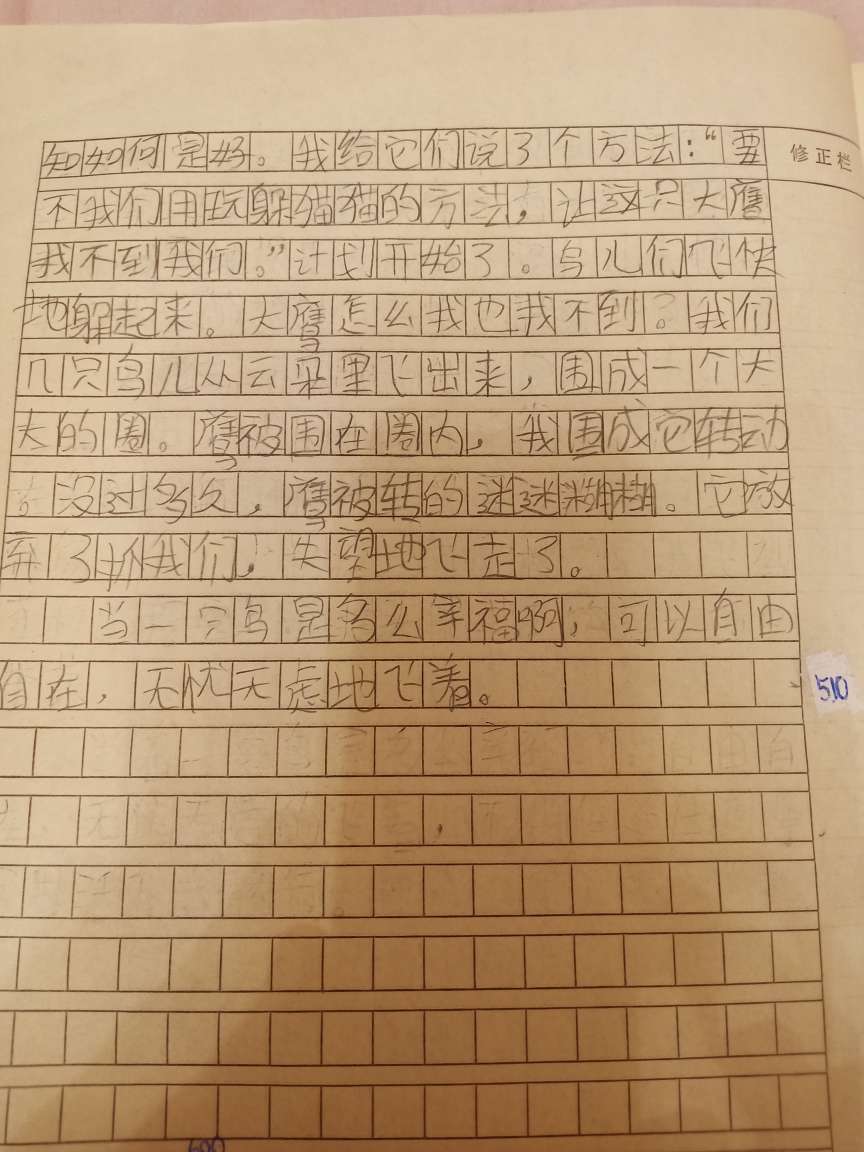 知如何是好。我给它们说了个方法：“要 修正栏
不我们用玩躲猫猫的方法，让这只大鹰
我不到我们。”计划开始了。鸟儿们飞快
地躲起来。大鹰怎么我也我不到？我们
几只鸟儿从云朵里飞出来，围成一个大
大的圈。鹰被围在圈内，我围成它转动
没过多久，鹰被转的迷迷糊糊。它放
弃了抓我们，失望地飞走了。
当一只鸟是多么幸福啊，可以自由
自在，无忧无虑地飞着。
510
600